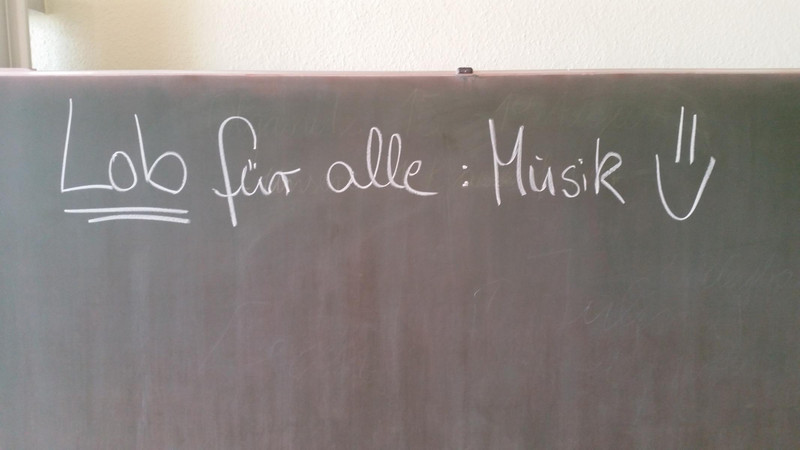 Lob für alle : Musik